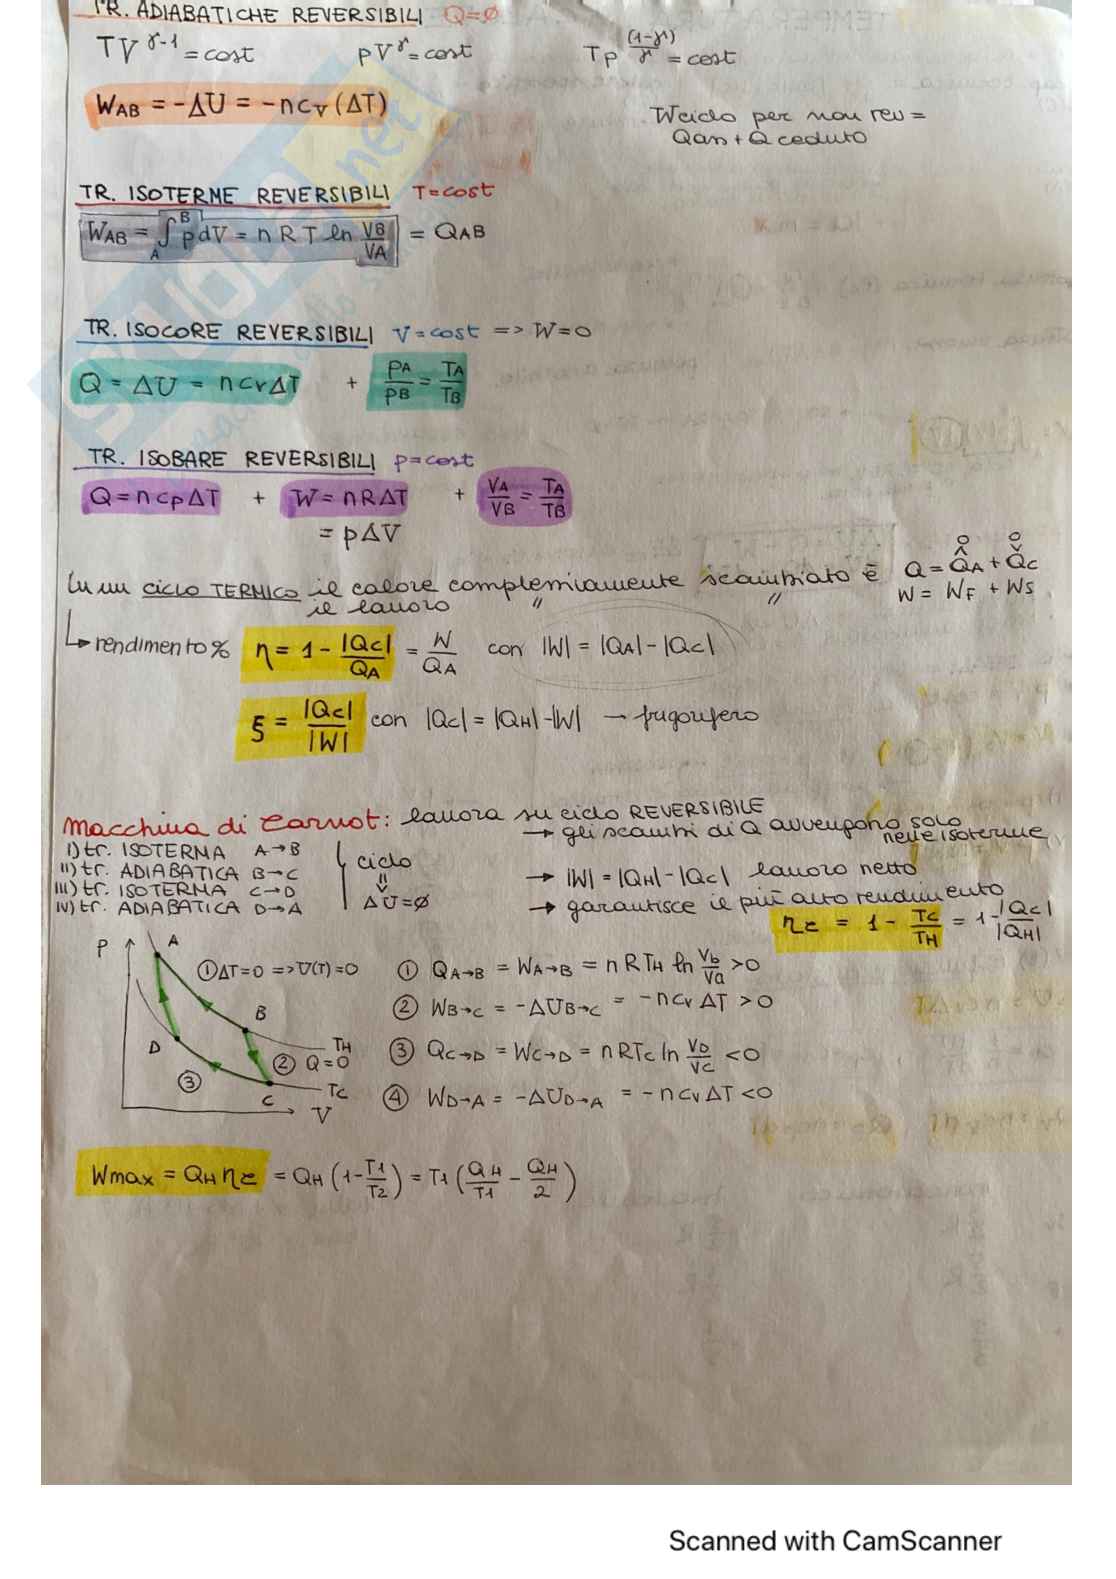 TR. ADIABATICHE REVERSIBILI Q=∅
TV^γ-1 = cost   pV^γ = cost   Tp^(1-γ)/γ = cost
WAB = -ΔU = -ncv(ΔT)
Wciclo per non rev =
Qass + Q ceduto
TR. ISOTERME REVERSIBILI T=cost
WAB = ∫_A^B pdV = nRT ln VB/VA = QAB
TR. ISOCORE REVERSIBILI V=cost => W=0
Q = ΔU = ncvΔT + PA/PB = TA/TB
TR. ISOBARE REVERSIBILI p=cost
Q=ncpΔT + W=nRΔT + VA/VB = TA/TB
= pΔV
In un CICLO TERMICO il calore complemiamente scambiato è Q = QA + QC
il lavoro " " W = WF + WS
0 ^ 0 v
↳ rendimento % η = 1 - |QC|/QA = W/QA con |W| = |QA| - |QC|
ξ = |QC|/|W| con |QC| = |QH| - |W| → frigorifero
Macchina di Carnot: lavora su ciclo REVERSIBILE
→ gli scambi di Q avvengono solo
nelle isoterme
I) tr. ISOTERMA A→B
II) tr. ADIABATICA B→C
III) tr. ISOTERMA C→D
IV) tr. ADIABATICA D→A
ciclo
⇓
ΔU=∅
→ |W| = |QH| - |QC| lavoro netto
→ garantisce il più alto rendimento
ηc = 1 - TC/TH = 1 - |QC|/|QH|
P A
① ΔT=0 => U(T)=0
B
D
TH
② Q=0
③
TC
C
V
① QA→B = WA→B = nRTH ln Vb/Va >0
② WB→C = -ΔUB→C = -ncvΔT >0
③ QC→D = WC→D = nRTC ln VD/VC <0
④ WD→A = -ΔUD→A = -ncvΔT <0
Wmax = QH ηc = QH (1 - T1/T2) = T1 (QH/T1 - QH/2)
Scanned with CamScanner